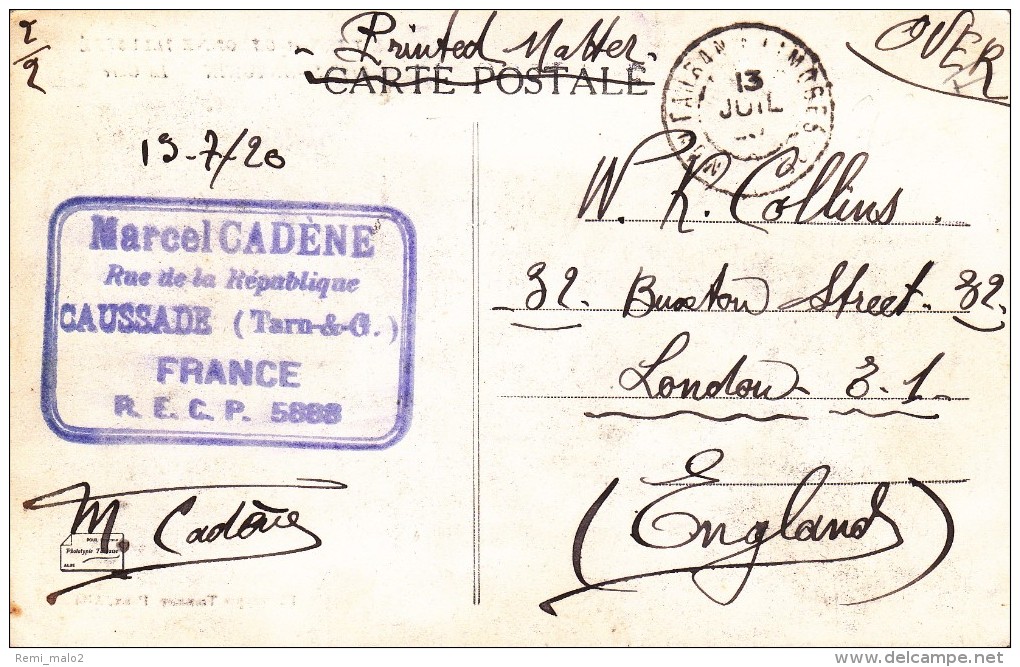 1/2
Printed Matter.
CARTE POSTALE
OVER
13
JUIL
13-7/20
Marcel CADÈNE
Rue de la République
CAUSSADE (Tarn-&-G.)
FRANCE
R. E. C. P. 5888
M Cadène
W. K. Collins.
32. Buxton Street. 32.
London - E-1.
(England)
Phototypie Tarnaise
Remi_malo2
www.delcampe.net